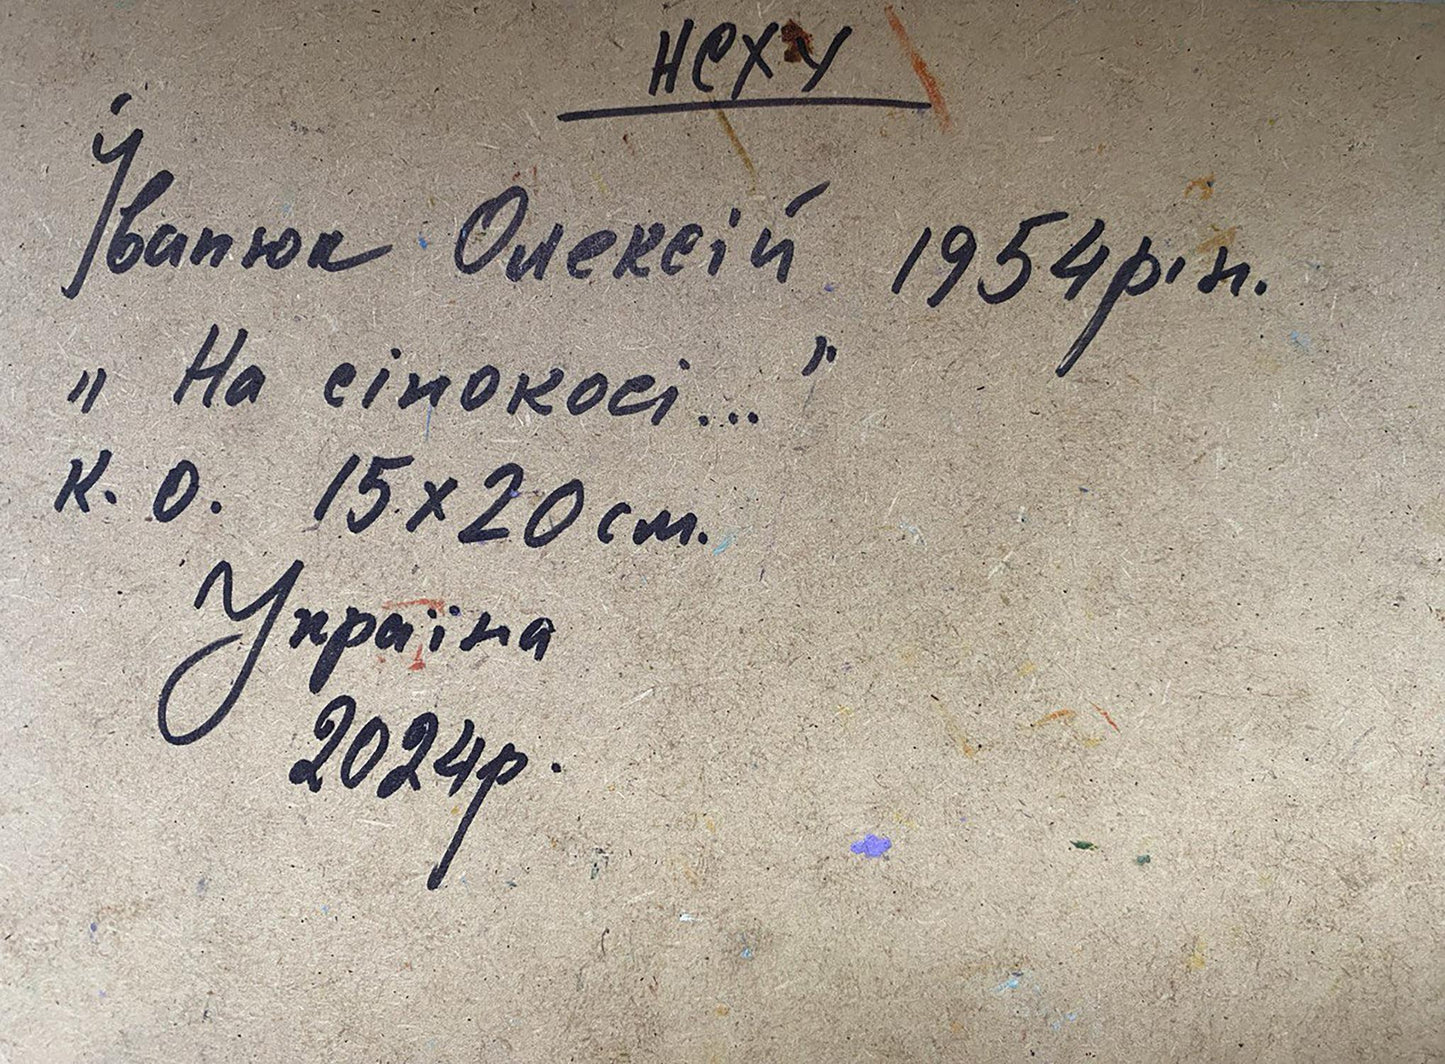 НСХУ
Іванюк Олексій 1954р.н.
„На сінокосі..."
к. о. 15х20см.
Україна
2024р.